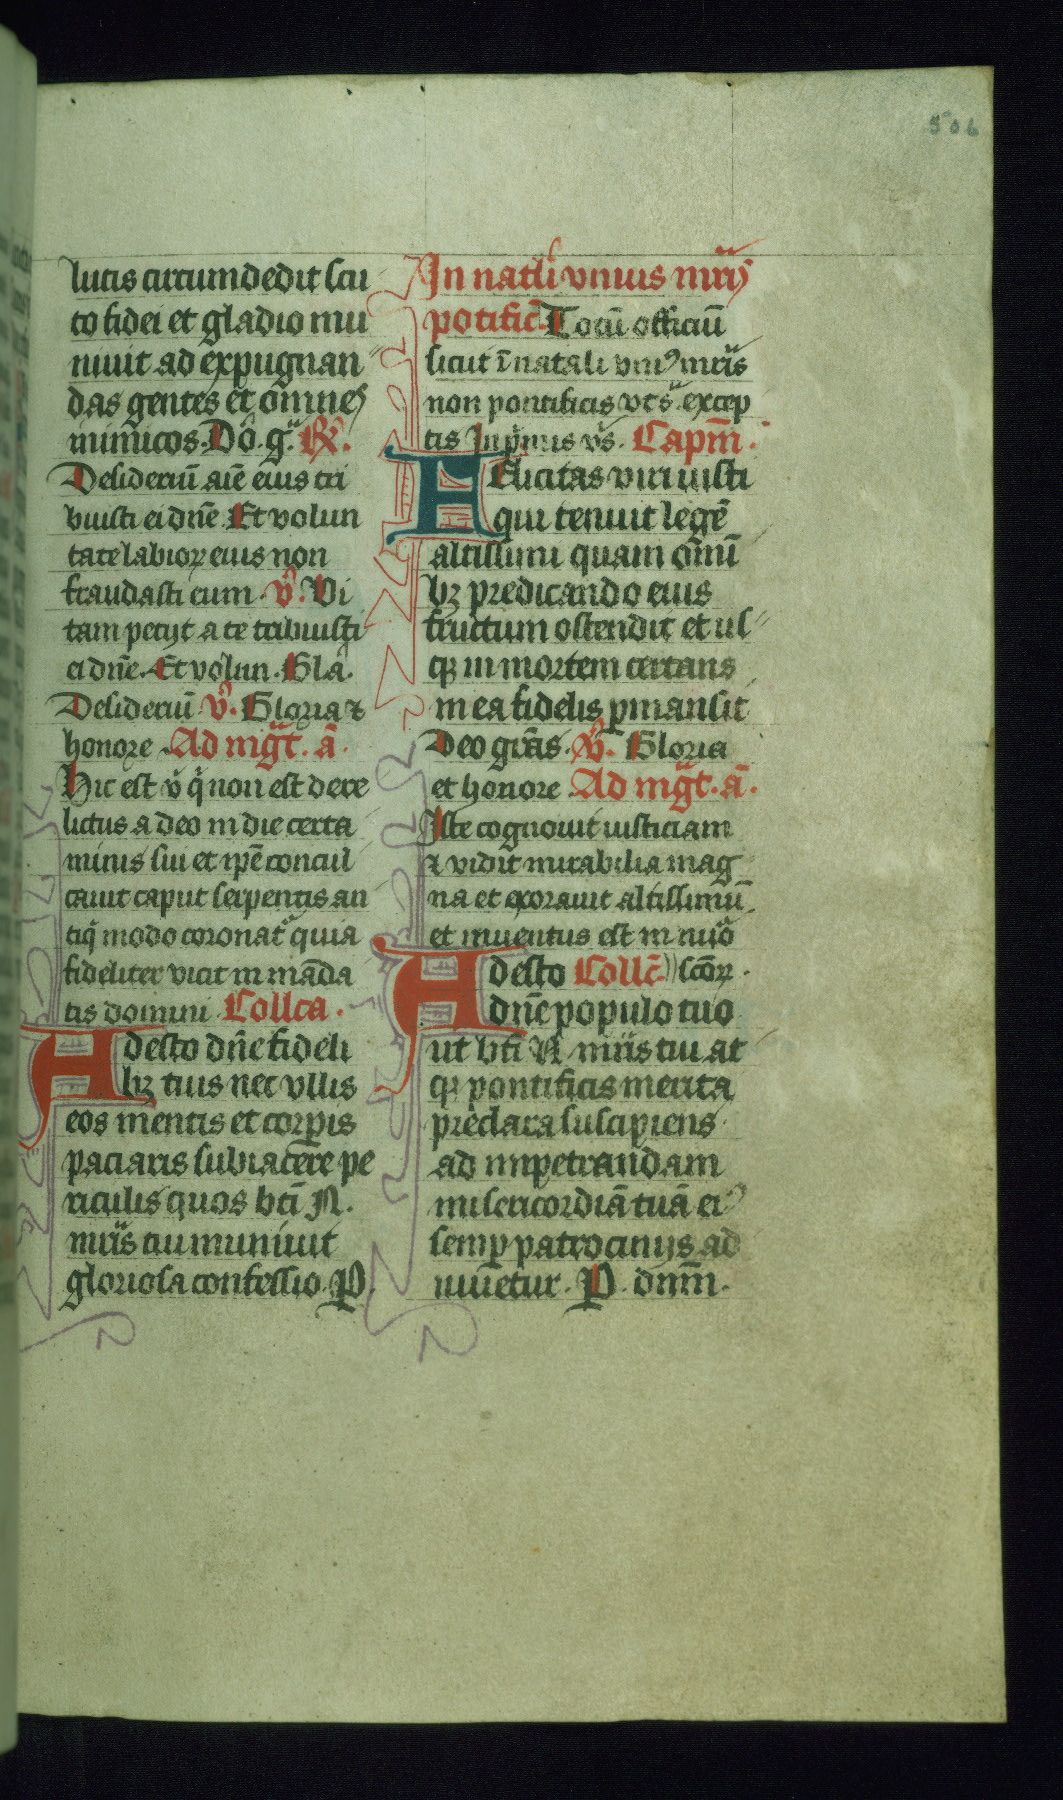 506
lutis circumdedit scu
to fidei et gladio mu
niuit ad expugnan
das gentes et omnes
inimicos. Dō. gͣ. R̄.
Desideriū aīe eius tri
buisti ei dn̄e. Et volun
tate labioꝝ eius non
fraudasti eum. v̄. Vi
tam petijt a te tribuisti
ei dn̄e. Et volun. Glā.
Desideriū v̄. Gloria ⁊
honore. Ad mḡt. ā.
Hic est v̄ q̄ non est dere
lictus a deo in die certa
minis sui et ip̄e concul
cauit caput serpentis an
tiq̄ modo coronatͬ quia
fideliter vicit in māda
tis domini. Collca.
Adesto dn̄e fideli
bꝫ tuis nec vllis
eos mentis et corꝑis
paciaris subiacere pe
riculis quos bt̄i N.
mr̄is tui muniuit
gloriosa confessio. P.
In natl̄i vnius mr̄is
pōtific̄. Totū officiū
sicut ī natali vniꝰ mr̄is
non pontificis vt sͣ. excep
tis in pͥmis vs̄. Capm̄.
Felicitas viri iusti
qui tenuit legē
altissimi quam om̄i
bꝫ predicando eius
fructum ostendit et us
qꝫ in mortem certans
in ea fidelis ꝑmansit
Deo gr̄as. v̄. Gloria
et honore Ad mḡt. ā.
Iste cognouit iusticiam
⁊ vidit mirabilia mag
na et exorauit altissimū
et inuentus est in nūo
Adesto Collc̄ sc̄oꝝ.
dn̄e populo tuo
ut bt̄i N. mr̄is tui at
qꝫ pontificis merita
preclara suscipiens
ad impetrandam
misericordiā tuā eiꝰ
semꝑ patrocinijs ad
iuuetur. P. dnm̄.